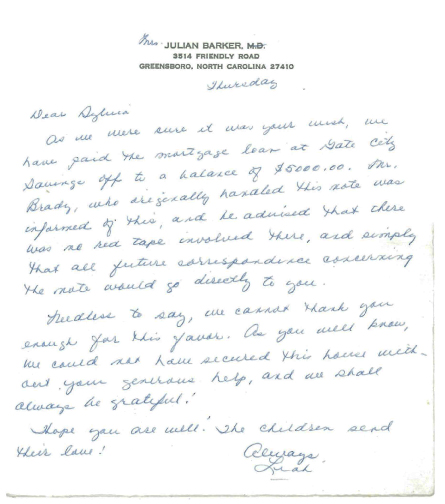 Mrs. JULIAN BARKER, M.D.
3514 FRIENDLY ROAD
GREENSBORO, NORTH CAROLINA 27410
Thursday
Dear Sylvia
As we were sure it was your wish, we
have paid the mortgage loan at Gate City
Savings off to a balance of $5000.00. Mr.
Brady, who originally handled this note was
informed of this, and he advised that there
was no red tape involved there, and simply
that all future correspondence concerning
the note would go directly to you.
Needless to say, we cannot thank you
enough for this favor. As you well know,
we could not have secured this house with-
out your generous help, and we shall
always be grateful!
Hope you are well! The children send
their love!
Always
Leah